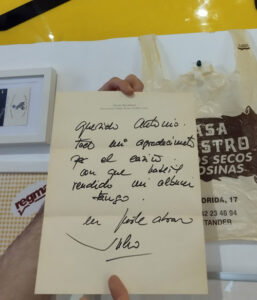 Querido Antonio.
Todo mi agradecimiento
por el cariño
con que habéis
rendido mi album
tango.
un fuerte abrazo
Julio
ASA
STRO
OS SECOS
OSINAS
ORIDA, 17
42 23 46 94
TANDER
regma